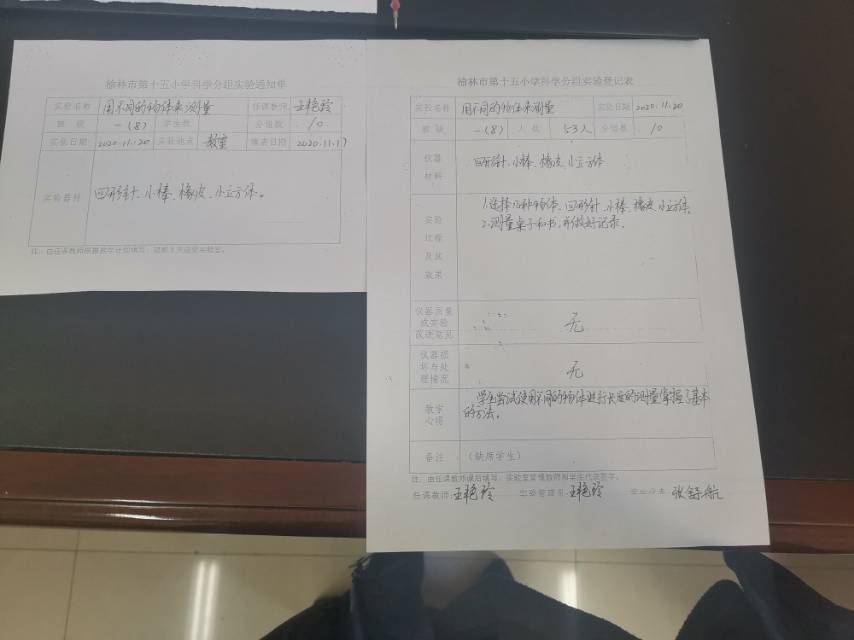 榆林市第十五小学科学分组实验通知单
实验名称 用不同的物体来测量 任课教师 王艳玲
班级 一(8) 学生数 分组数 10
实验日期 2020.11.20 实验地点 教室 填表日期 2020.11.17
实验器材 回形针、小棒、橡皮、小立方体。
榆林市第十五小学科学分组实验登记表
实验名称 用不同的物体来测量 实验日期 2020.11.20
班级 一(8) 人数 53人 分组数 10
仪器材料 回形针、小棒、橡皮、小立方体
实验过程及其效果
1.选择几种物体、回形针、小棒、橡皮、小立方体
2.测量桌子和书,并做好记录。
仪器质量或实验改进意见 无
仪器损坏与处理情况 无
教学心得 学生尝试使用不同的物体进行长度的测量掌握了基本
的方法。
备注 (缺席学生)
注:由任课教师课后填写,实验室管理教师和学生代表签字。
任课教师:王艳玲 实验管理员:王艳玲 张舒航